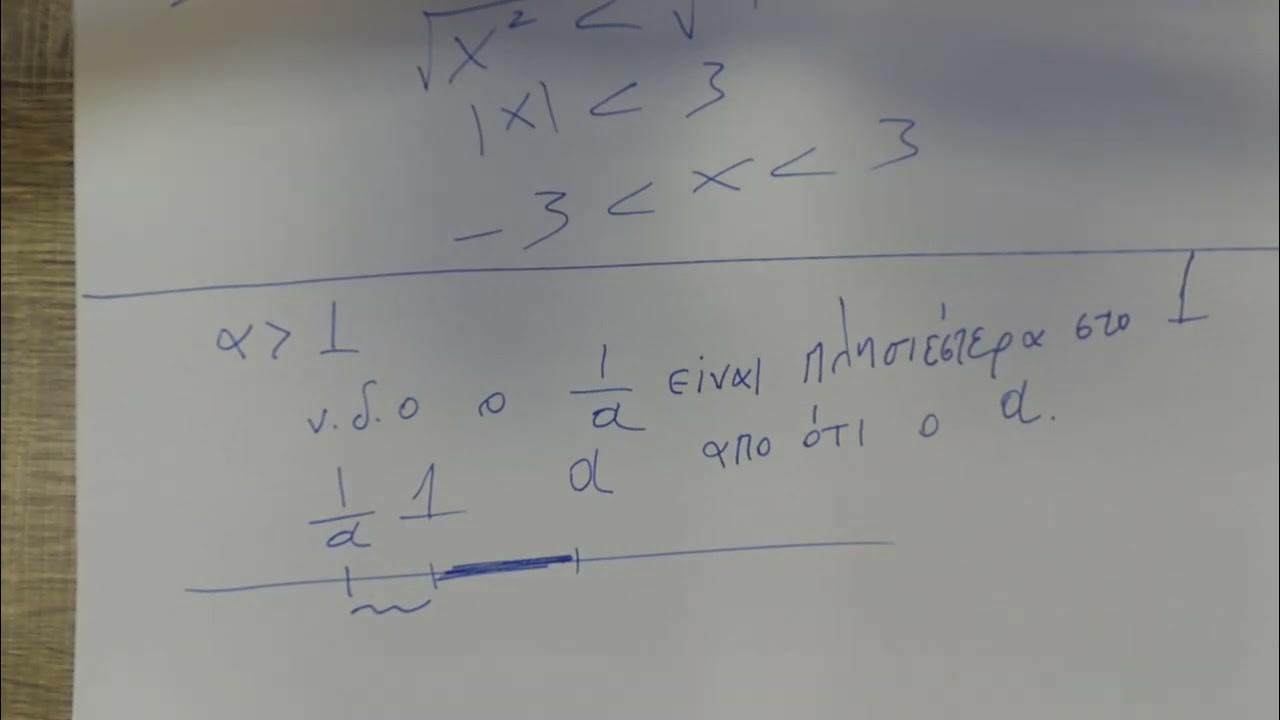 √x² < √
|x| < 3
-3 < x < 3
α > 1
ν.δ.ο ο 1/α είναι πλησιέστερα στο 1
απο ότι ο α.
1/α 1 α